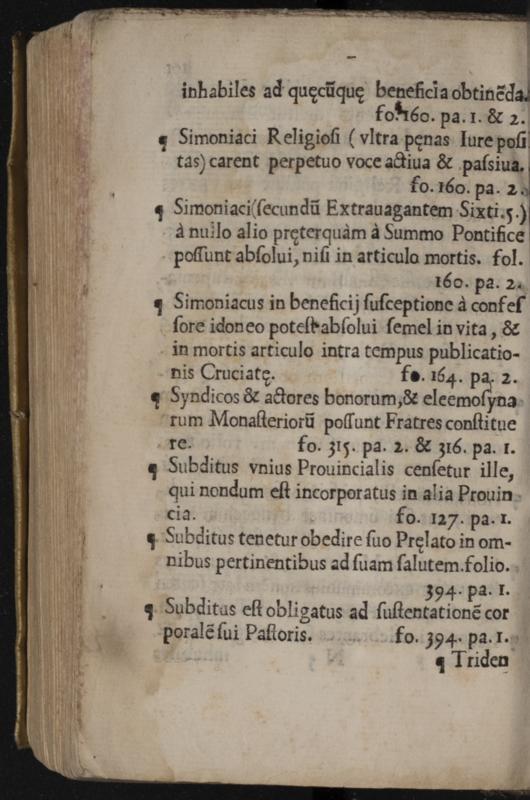 inhabiles ad quęcũquę beneficia obtinẽda.
fo. 160. pa. 1. & 2.
¶ Simoniaci Religiosi ( vltra pęnas Iure posi
tas) carent perpetuo voce actiua & passiua.
fo. 160. pa. 2.
¶ Simoniaci (secundũ Extrauagantem Sixti. 5.)
à nullo alio pręterquàm à Summo Pontifice
possunt absolui, nisi in articulo mortis. fol.
160. pa. 2.
¶ Simoniacus in beneficij susceptione à confes
sore idoneo potest absolui semel in vita, &
in mortis articulo intra tempus publicatio-
nis Cruciatę. fo. 164. pa. 2.
¶ Syndicos & actores bonorum, & eleemosyna
rum Monasteriorũ possunt Fratres constitue
re. fo. 315. pa. 2. & 316. pa. 1.
¶ Subditus vnius Prouincialis censetur ille,
qui nondum est incorporatus in alia Prouin
cia. fo. 127. pa. 1.
¶ Subditus tenetur obedire suo Pręlato in om-
nibus pertinentibus ad suam salutem. folio.
394. pa. 1.
¶ Subditus est obligatus ad sustentationẽ cor
poralẽ sui Pastoris. fo. 394. pa. 1.
¶ Triden